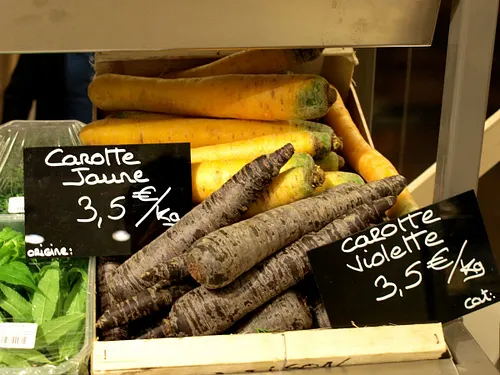 Carotte
Jaune
3,5 €/kg
origine:
carotte
violette
3,5 €/kg
cat: